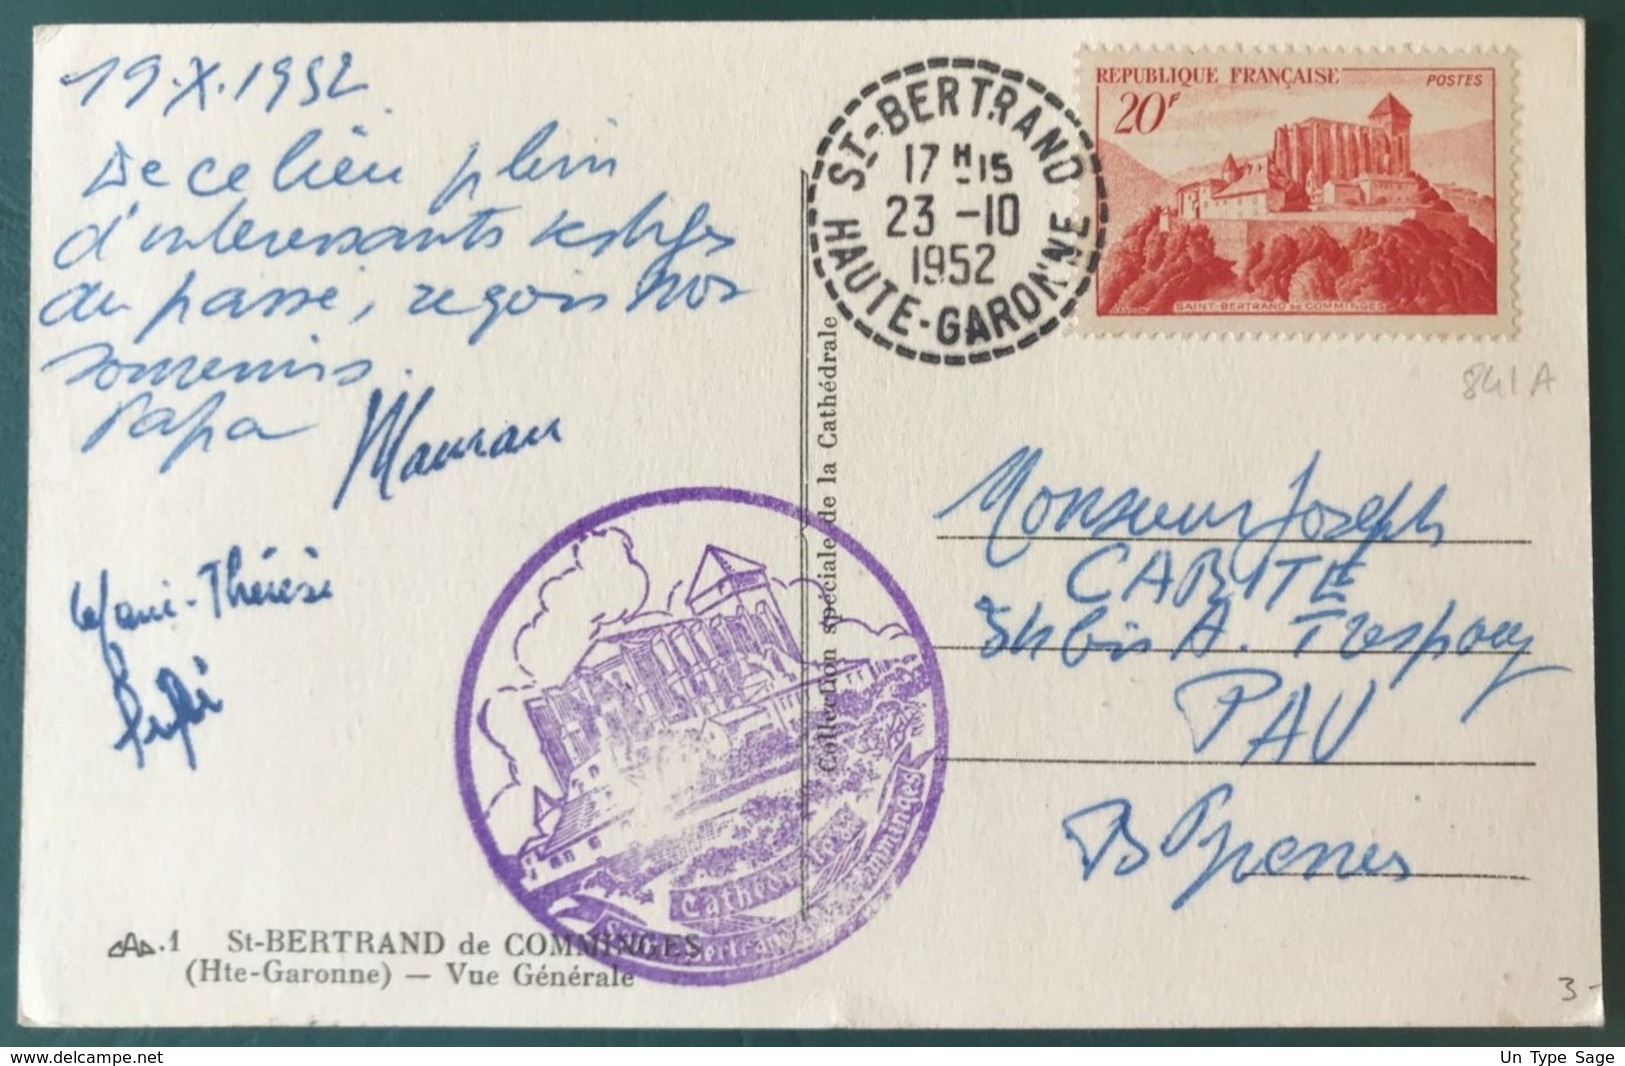 19.X.1952
De ce lieu plein
d'intéressants vestiges
du passé, reçois nos
souvenirs.
Papa
Maman
Marie-Thérèse
ST-BERTRAND
17 H 15
23 -10
1952
HAUTE-GARONNE
REPUBLIQUE FRANÇAISE POSTES
20F
SAINT-BERTRAND DE COMMINGES
841A
Collection spéciale de la Cathédrale
Monsieur Joseph
CABITE
bis A. Trespoey
PAU
B Pyrénées
Cathédrale
Comminges
.1 St-BERTRAND de COMMINGES
(Hte-Garonne) — Vue Générale
3-
Un Type Sage
www.delcampe.net